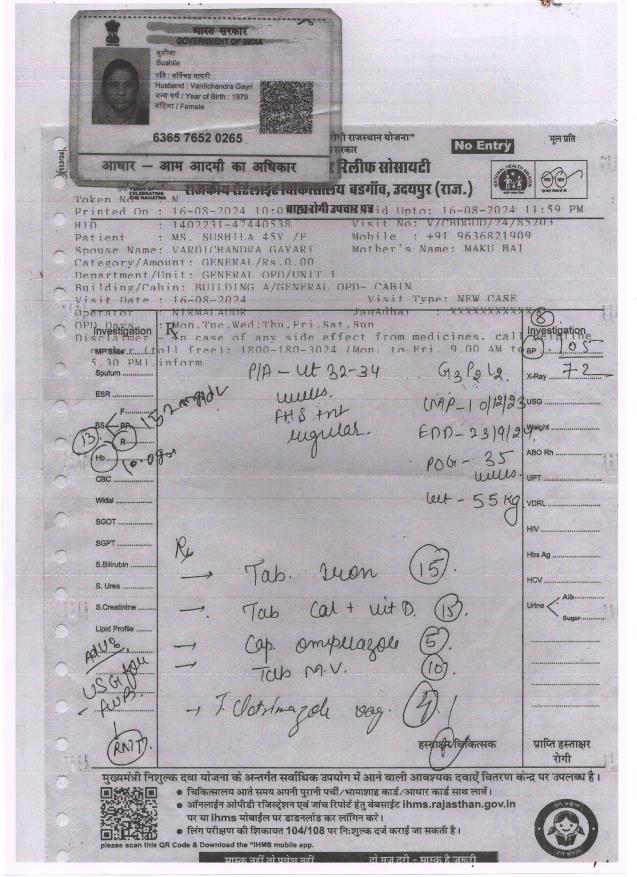 भारत सरकार
GOVERNMENT OF INDIA
सुशीला
Sushila
पति : वर्दिचंद्र गायरी
Husband : Vardichandra Gayri
जन्म वर्ष / Year of Birth : 1979
महिला / Female
6365 7652 0265
आधार – आम आदमी का अधिकार
राजस्थान योजना"
No Entry
मूल प्रति
रिलीफ सोसायटी
राजकीय सैटेलाईट चिकित्सालय बडगाँव, उदयपुर (राज.)
CELEBRATING
THE MAHATMA
Token No
N
Printed On : 16-08-2024 10:0
बाह्य रोगी उपचार पत्र
id Upto: 16-08-2024 11:59 PM
HID : 1402231-47440538
Visit No: V/CBUGUD/24/85203
Patient : MS. SUSHILA 45Y /F
Mobile : +91 9636821909
Spouse Name: VARDICHANDRA GAYARI
Mother's Name: MAKU BAI
Category/Amount: GENERAL/Rs.0.00
Department/Unit: GENERAL OPD/UNIT 1
Building/Cabin: BUILDING A/GENERAL OPD- CABIN
Visit Date : 16-08-2024
Visit Type: NEW CASE
Operator : NIRMALAUDR
JanAdhar : XXXXXXXXXXX
OPD Days : Mon,Tue,Wed,Thu,Fri,Sat,Sun
Disclaimer - In case of any side effect from medicines, call helpline
(toll free): 1800-180-3024 (Mon. to Fri. 9.00 AM to
5.30 PM).inform
Investigation
MP Slide
Sputum
ESR
F
BS PP
R
13
152 mg/dl
Hb
10.0 gm
CBC
Widal
SGOT
SGPT
S.Bilirubin
S. Urea
S.Creatinine
Lipid Profile
Adv
USG for
FWB
Rx
P/A – ut 32-34
weeks
FHS +nt
regular.
G3P2L2
LMP – 10/12/23
EDD – 23/9/24
POG – 35
weeks
wt – 55 kg
Rx
→ Tab. Iron 15
→ Tab Cal + vit D. 15
→ Cap. omeprazole 5
→ Tab M.V. 10
→ T. Clotrimazole vag. 4
हस्ताक्षर चिकित्सक
8
Investigation
BP 105
72
X-Ray
USG
Weight
ABO Rh
UPT
VDRL
HIV
Hbs Ag
HCV
Urine
Alb
Sugar
प्राप्ति हस्ताक्षर
रोगी
मुख्यमंत्री निशुल्क दवा योजना के अन्तर्गत सर्वाधिक उपयोग में आने वाली आवश्यक दवाएँ वितरण केन्द्र पर उपलब्ध है।
● चिकित्सालय आते समय अपनी पुरानी पर्ची/भामाशाह कार्ड/आधार कार्ड साथ लावें।
● ऑनलाईन ओपीडी रजिस्ट्रेशन एवं जांच रिपोर्ट हेतु वेबसाईट ihms.rajasthan.gov.in
पर या ihms मोबाईल पर डाउनलोड कर लॉगिन करें।
● लिंग परीक्षण की शिकायत 104/108 पर निःशुल्क दर्ज कराई जा सकती है।
please scan this QR Code & Download the "IHMS mobile app.
मास्क नहीं तो प्रवेश नहीं
दो गज दूरी - मास्क है जरूरी